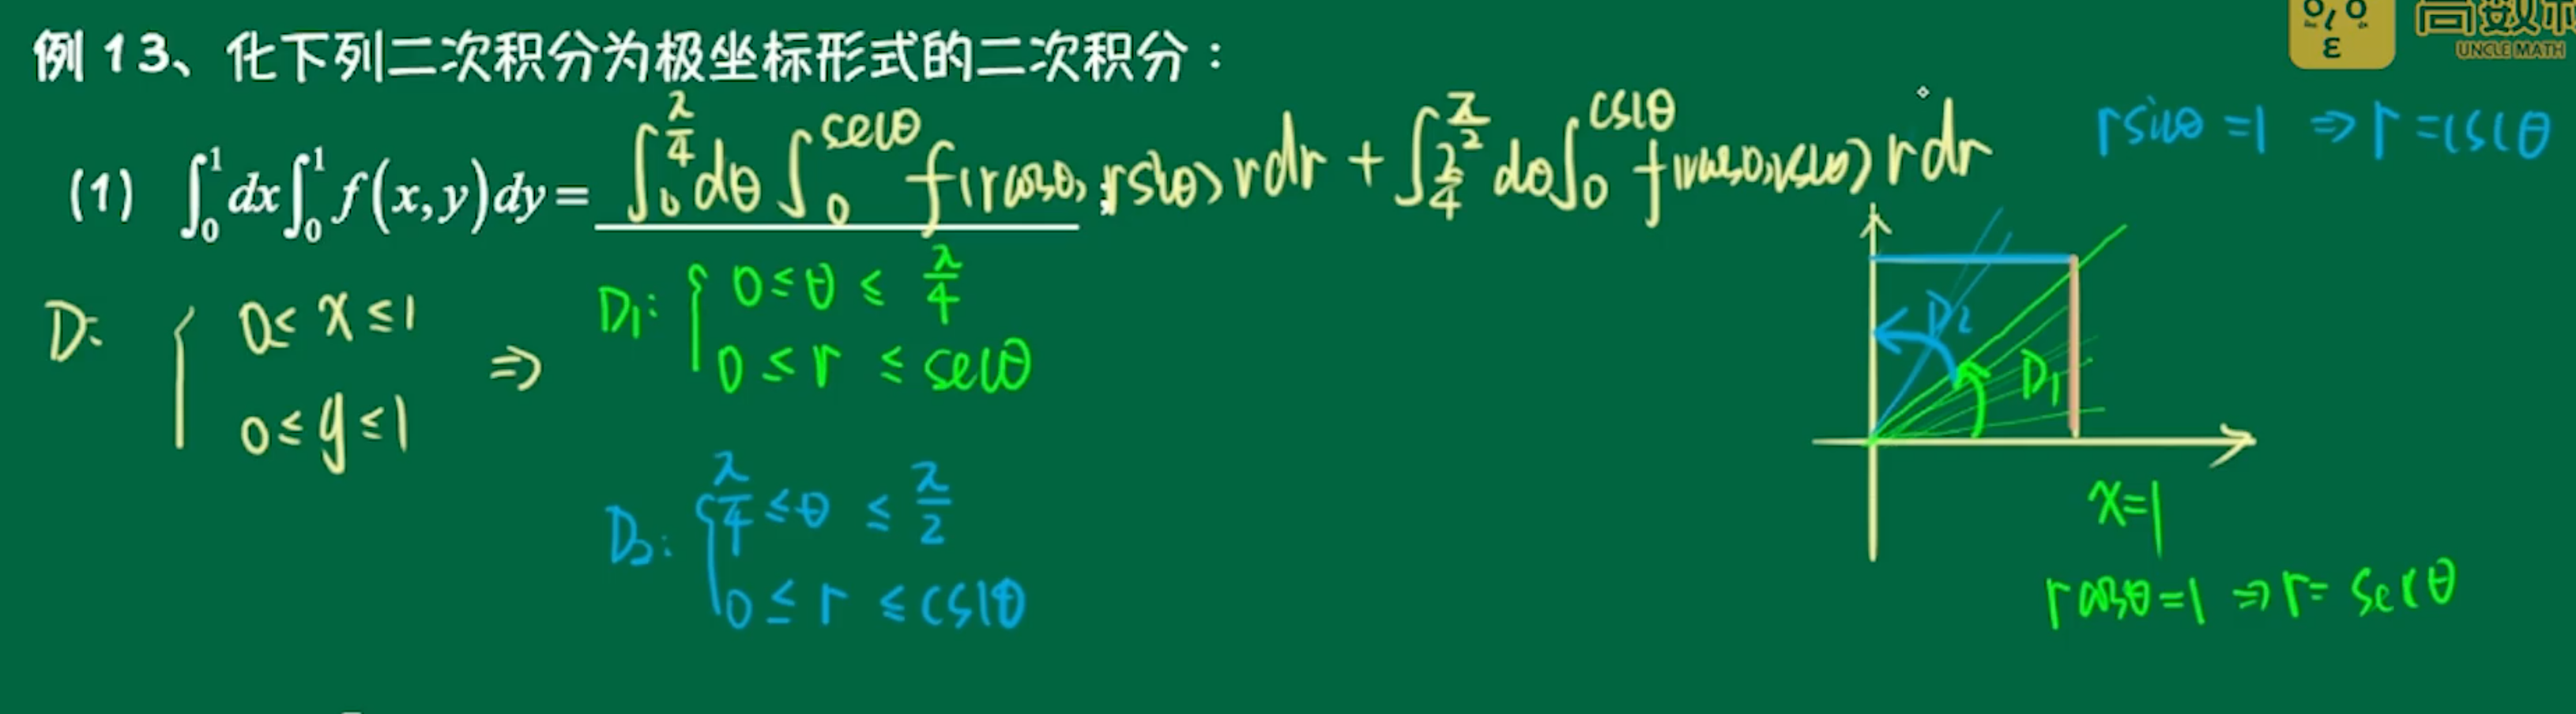 例 13、化下列二次积分为极坐标形式的二次积分：
UNCLE MATH
(1) ∫₀¹ dx ∫₀¹ f(x,y)dy = ∫₀^{π/4} dθ ∫₀^{secθ} f(rcosθ, rsinθ) rdr + ∫_{π/4}^{π/2} dθ ∫₀^{cscθ} f(rcosθ, rsinθ) rdr
rsinθ = 1 ⇒ r = cscθ
D: { 0≤ x ≤ 1
0 ≤ y ≤ 1
⇒
D₁: { 0 ≤ θ ≤ π/4
0 ≤ r ≤ secθ
D₂: { π/4 ≤ θ ≤ π/2
0 ≤ r ≤ cscθ
D₂
D₁
x=1
rcosθ = 1 ⇒ r = secθ